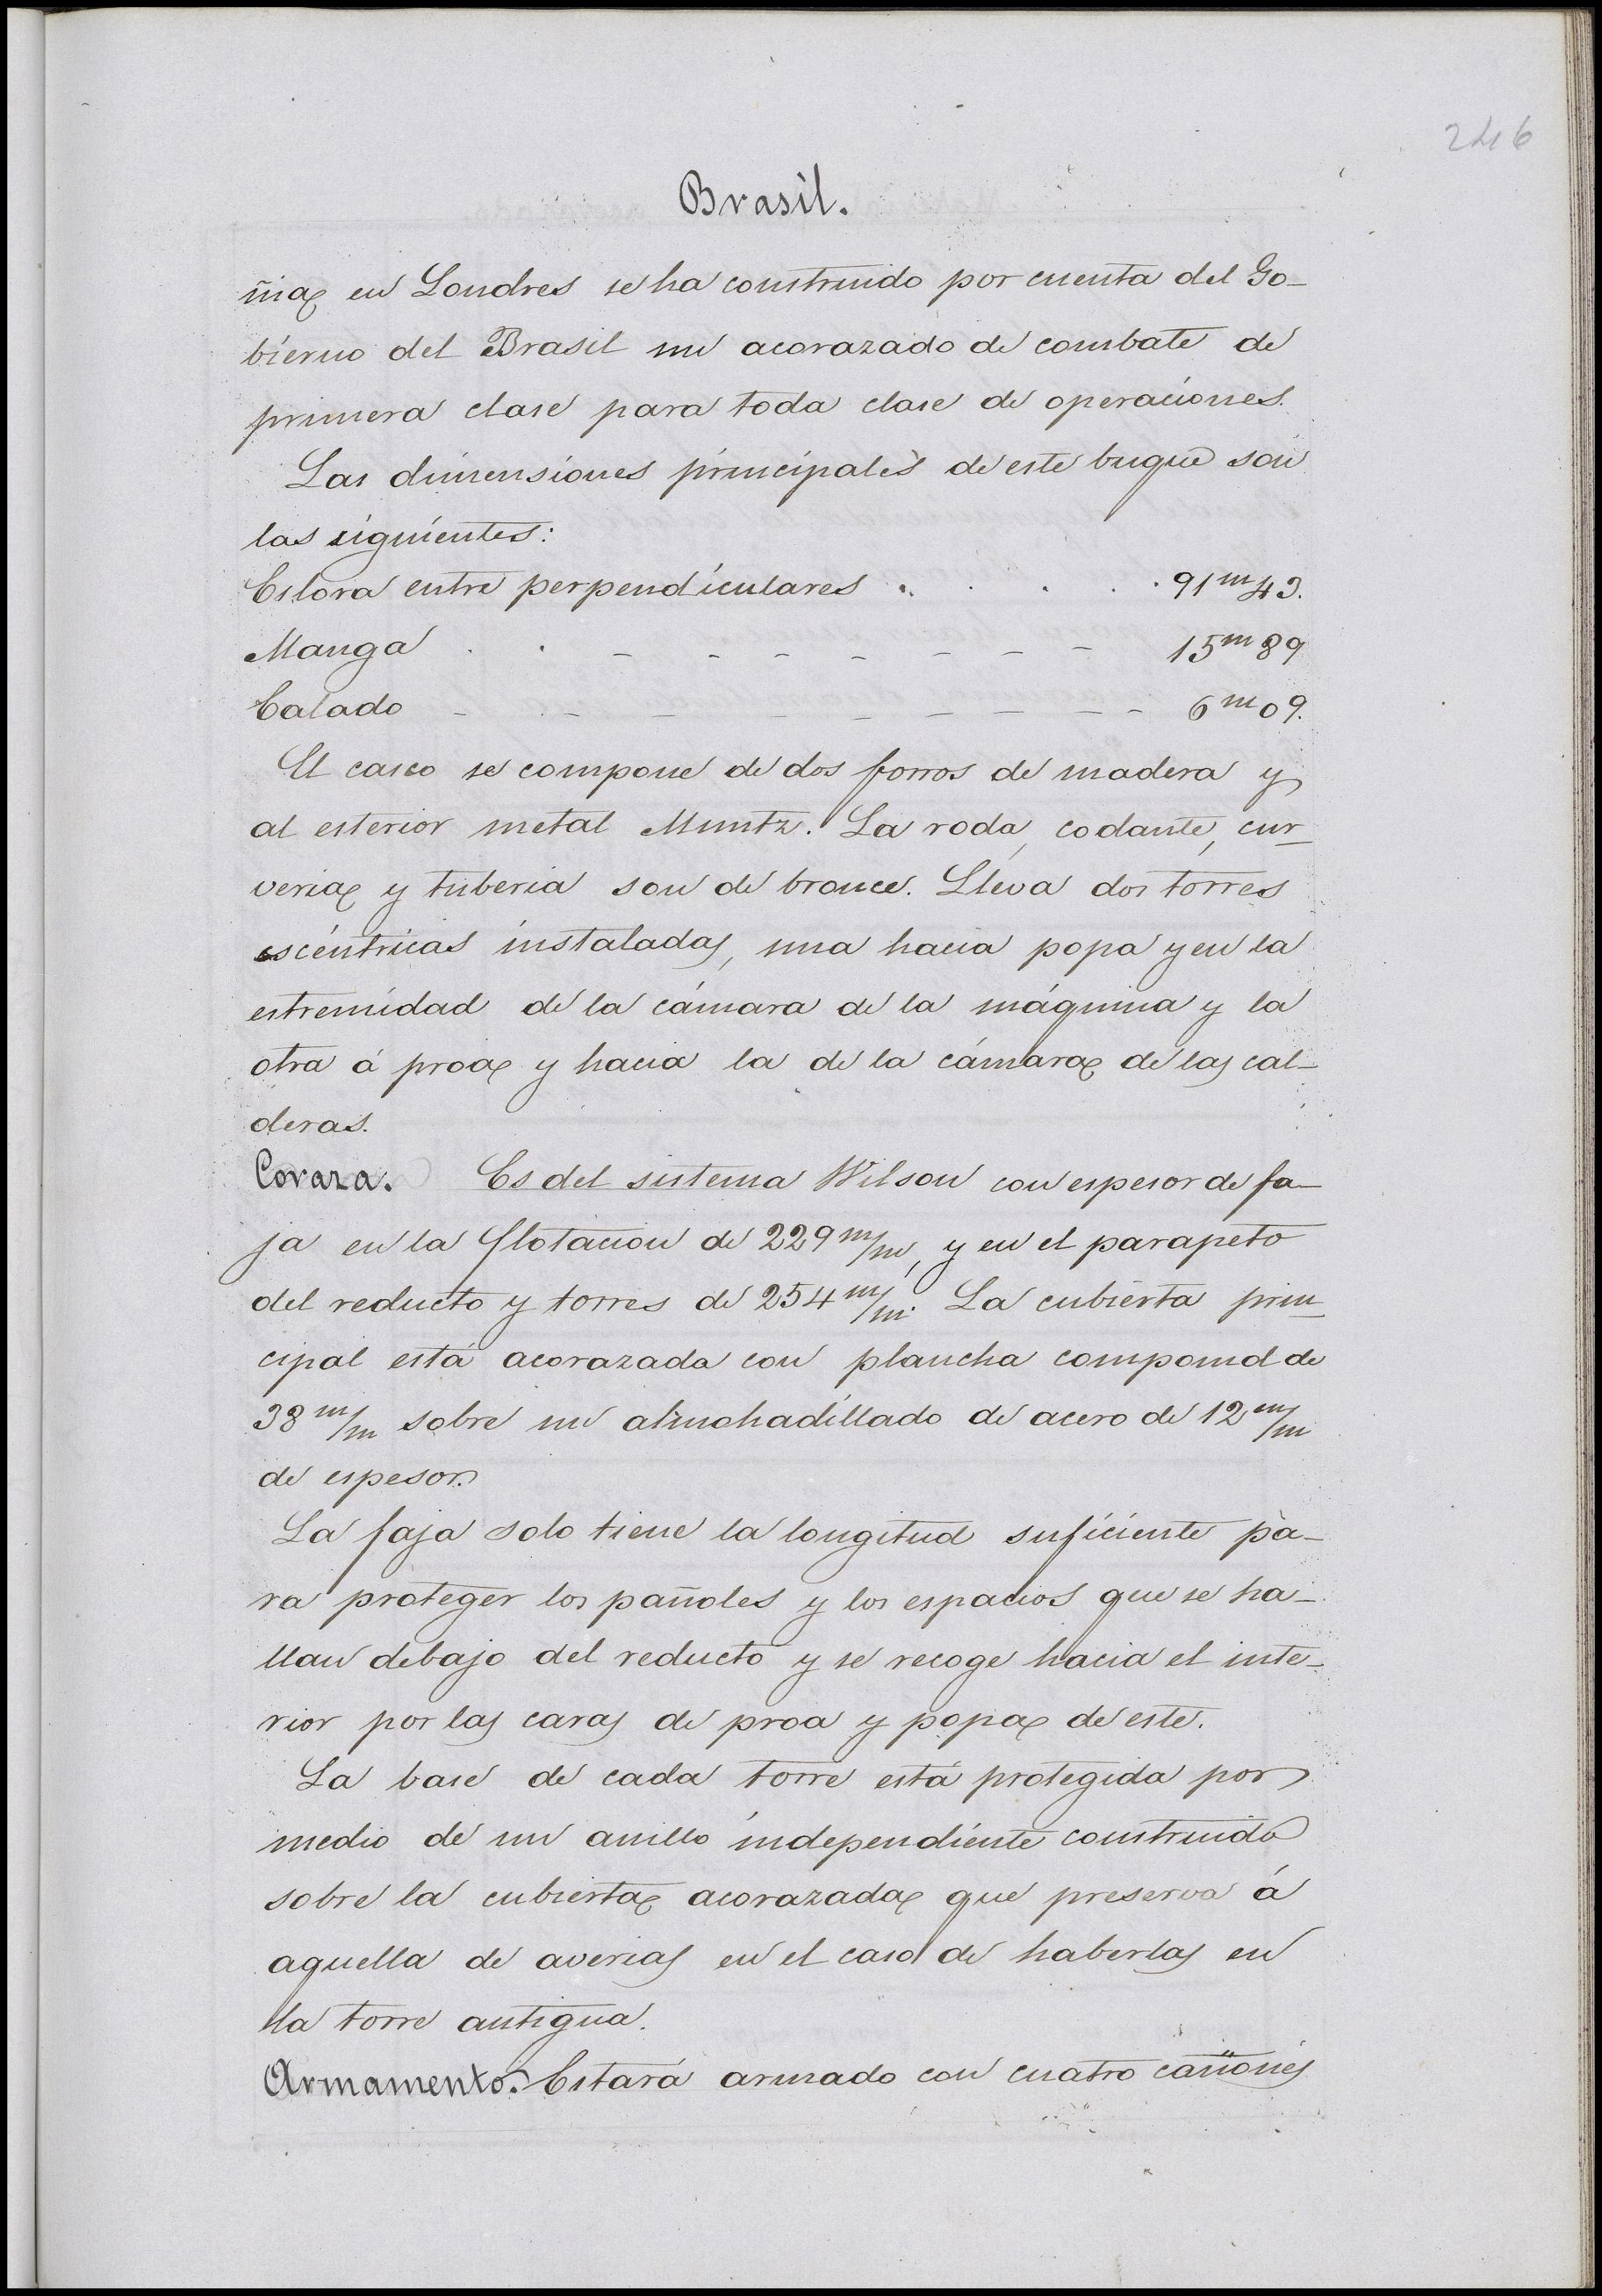 246
Brasil.
ñia en Londres se ha construido por cuenta del Go-
bierno del Brasil un acorazado de combate de
primera clase para toda clase de operaciones.
Las dimensiones principales de este buque son
las siguientes:
Eslora entre perpendiculares . . . . . 91m43.
Manga . . - - - - - - - 15m89
Calado - - - - - - - - - 6m09.
El casco se compone de dos forros de madera y
al esterior metal Muntz. La roda, codaste, cur-
veria y tuberia son de bronce. Lleva dos torres
escéntricas instaladas, una hacia popa y en la
estremidad de la cámara de la máquina y la
otra á proa y hacia la de la cámara de las cal-
deras.
Coraza. Es del sistema Wilson con espesor de fa-
ja en la flotacion de 229 m/m, y en el parapeto
del reducto y torres de 254 m/m. La cubierta prin-
cipal está acorazada con plancha compound de
38 m/m sobre un almohadillado de acero de 12 m/m
de espesor.
La faja solo tiene la longitud suficiente pa-
ra proteger los pañoles y los espacios que se ha-
llan debajo del reducto y se recoge hacia el inte-
rior por las caras de proa y popa de este.
La base de cada torre está protegida por
medio de un anillo independiente construido
sobre la cubierta acorazada que preserva á
aquella de averias en el caso de haberlas en
la torre antigua.
Armamento. Estará armado con cuatro cañones